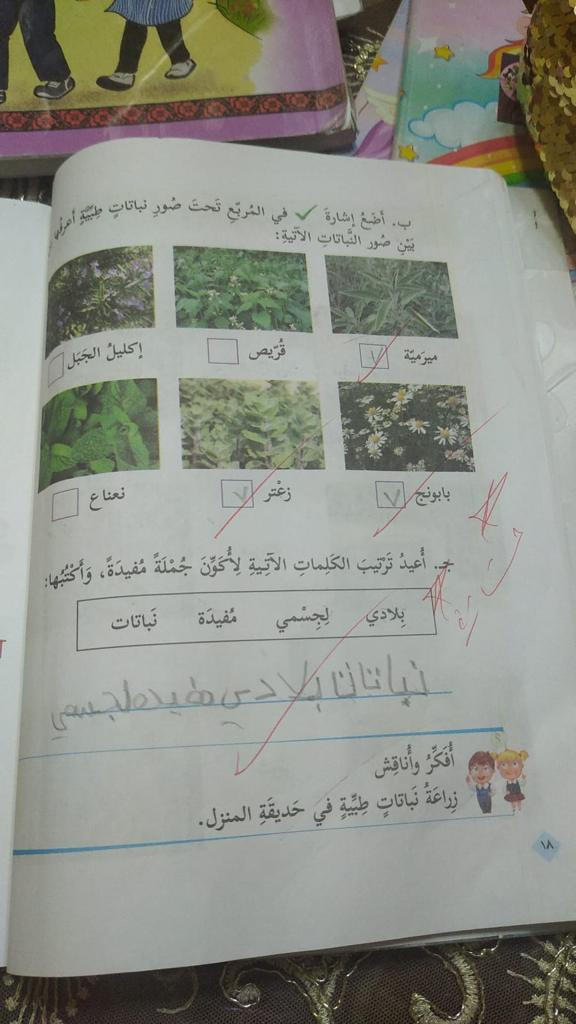 ب. أَضَعُ إشارةَ ✓ في المُربّعِ تَحتَ صُورِ نباتاتٍ طِبّيّةٍ أعرفُها
بَيْنِ صُور النَّباتاتِ الآتيةِ:
ميرَميّة
قُرّيص
إكليلُ الجَبَل
بابونج
زعْتر
نعناع
جـ. أُعيدُ تَرْتيبَ الكَلِماتِ الآتِيةِ لِأُكَوِّنَ جُمْلَةً مُفيدَةً، وَأَكْتُبُها:
بِلادي لِجِسْمي مُفيدَة نَباتات
نباتات بلادي مفيده لجسمي
أُفَكِّرُ وأُناقِش
زِراعَةُ نَباتاتٍ طِبِّيَّةٍ في حَديقَةِ المنزل.
١٨